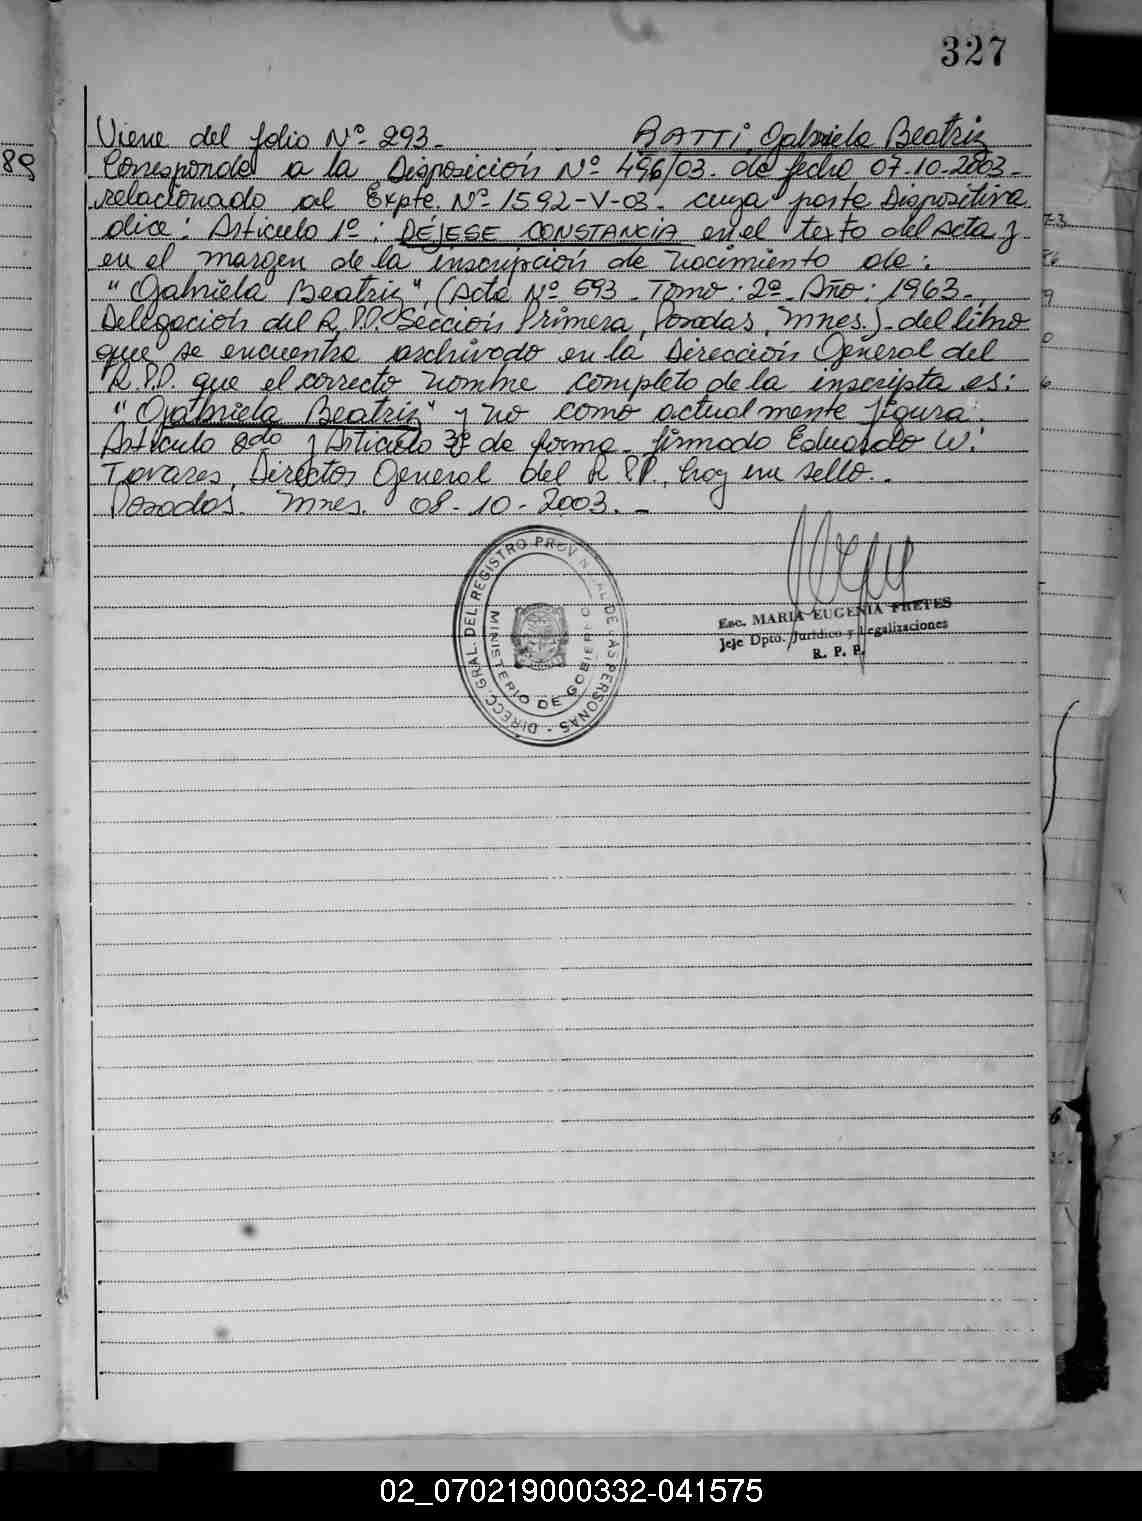 327
Viene del folio Nº 293.- BATTI, Gabriela Beatriz
Corresponde a la Disposición Nº 496/03. de fecha 07-10-2003.-
relacionado al Expte. Nº 1592-V-03. cuya parte Dispositiva
dice: Articulo 1º: DÉJESE CONSTANCIA en el texto del Acta y
en el margen de la inscripción de nacimiento de:
"Gabriela Beatriz", (Acta Nº 693 - Tomo: 2º - Año: 1963 -
Delegación del R.P.P. Sección Primera, Posadas, Mnes.) - del libro
que se encuentra archivado en la Dirección General del
R.P.P. que el correcto nombre completo de la inscripta es:
"Gabriela Beatriz" y no como actualmente figura.
Articulo 2do y Articulo 3º de forma - firmado Eduardo W.
Tavares, Director General del R.P.P., hay un sello.-
Posadas. Mnes. 08-10-2003.-
DIRECC. GRAL. DEL REGISTRO PROVINCIAL DE LAS PERSONAS -
MINISTERIO DE GOBIERNO
Esc. MARIA EUGENIA FRETES
Jefe Dpto. Jurídico y Legalizaciones
R. P. P.
89
02_070219000332-041575